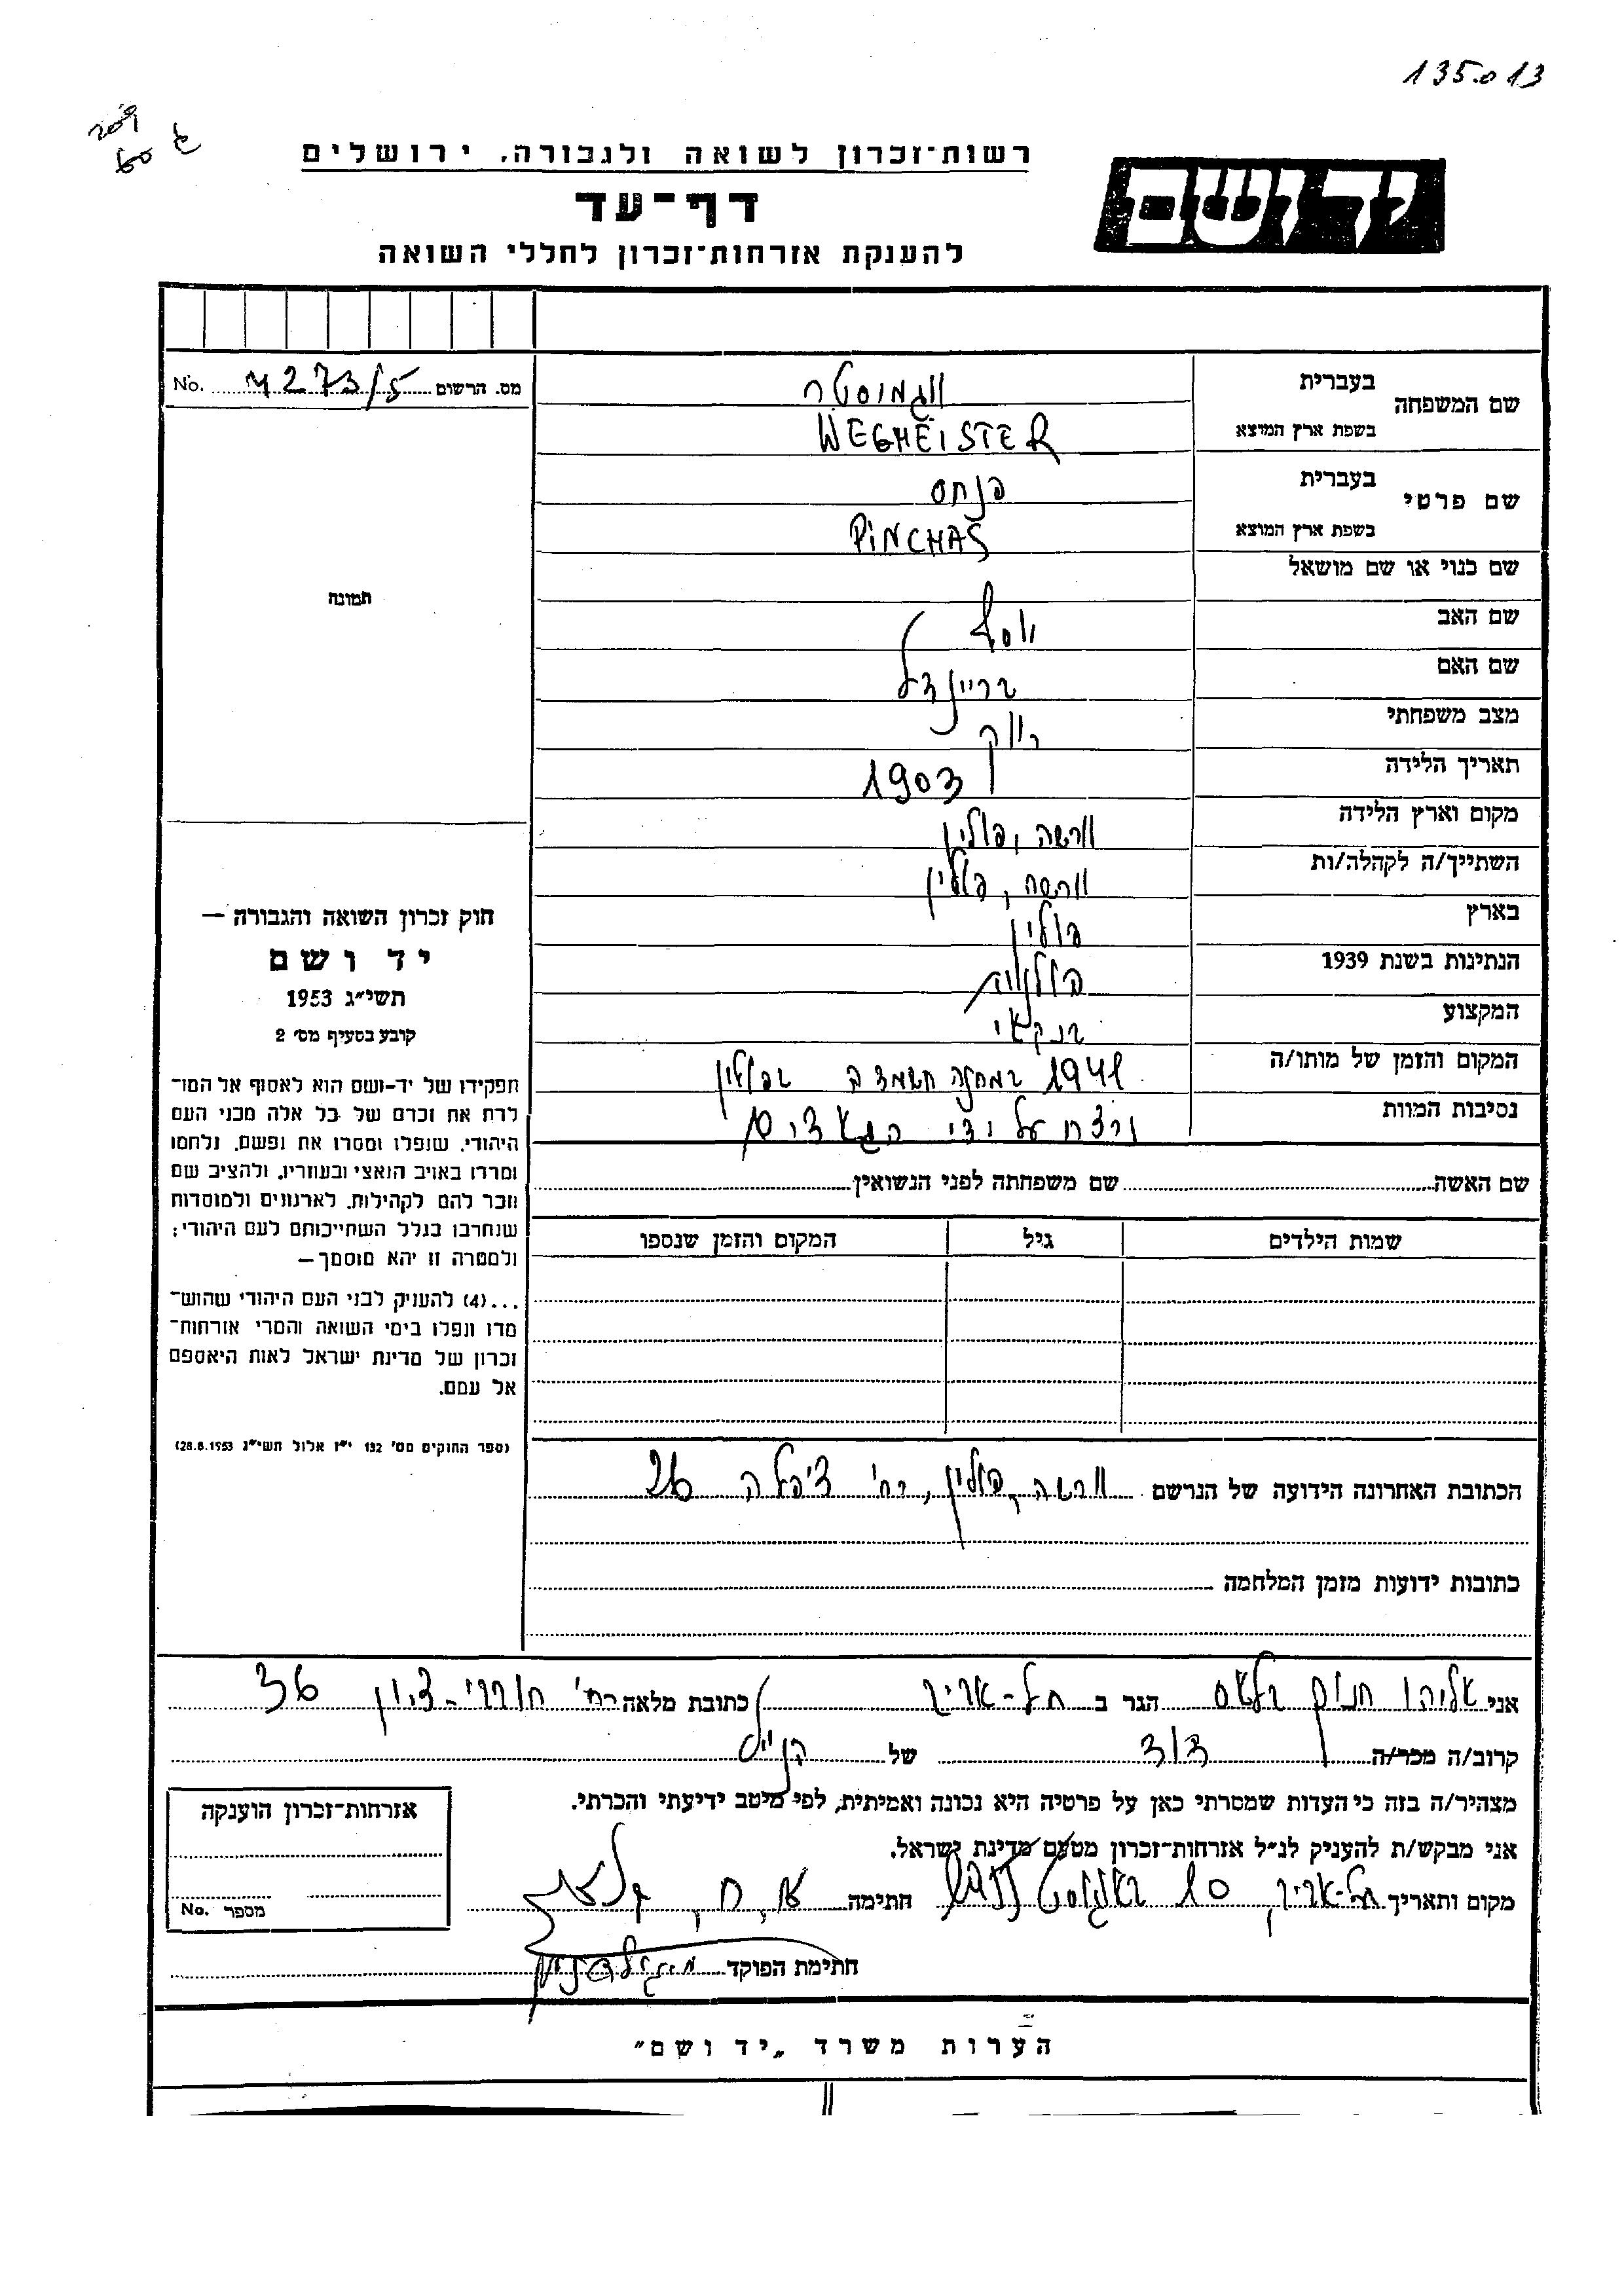 135013
רשות־זכרון לשואה ולגבורה, ירושלים
יד ושם
דף־עד
להענקת אזרחות־זכרון לחללי השואה
מס. הרשום 4273/5 No.
שם המשפחה
בעברית וגמיסטר
בשפת ארץ המוצא WEGMEISTER
שם פרטי
בעברית פנחס
בשפת ארץ המוצא PINCHAS
שם כנוי או שם מושאל
שם האב יוסף
שם האם בריינדל
מצב משפחתי רווק
תאריך הלידה 1903
מקום וארץ הלידה וורשה, פולין
השתייך/ה לקהלה/ות וורשה, פולין
בארץ פולין
הנתינות בשנת 1939 פולנית
המקצוע בנקאי
המקום והזמן של מותו/ה 1941 במחנה השמדה בפולין
נסיבות המוות נרצח על ידי הנאצים
שם האשה שם משפחתה לפני הנשואין
שמות הילדים גיל המקום והזמן שנספו
הכתובת האחרונה הידועה של הנרשם וורשה, פולין, רח' צ'פלה 26
כתובות ידועות מזמן המלחמה
תמונה
חוק זכרון השואה והגבורה —
יד ושם
תשי״ג 1953
קובע בסעיף מס׳ 2
תפקידו של יד־ושם הוא לאסוף אל המו־
לדת את זכרם של כל אלה מבני העם
היהודי, שנפלו ומסרו את נפשם, נלחמו
ומרדו באויב הנאצי ובעוזריו, ולהציב שם
וזכר להם לקהילות, לארגונים ולמוסדות
שנחרבו בגלל השתייכותם לעם היהודי;
ולמטרה זו יהא מוסמך —
...(4) להעניק לבני העם היהודי שהוש־
מדו ונפלו בימי השואה והמרי אזרחות־
זכרון של מדינת ישראל לאות היאספם
אל עמם.
(ספר החוקים מס׳ 132 י״ז אלול תשי״ג 28.8.1953)
אני אליהו חנוך הגר ב תל-אביב כתובת מלאה רח' חובבי-ציון 36
קרוב/ה מכר/ה דוד של הנ"ל
מצהיר/ה בזה כי העדות שמסרתי כאן על פרטיה היא נכונה ואמיתית, לפי מיטב ידיעתי והכרתי.
אני מבקש/ת להעניק לנ״ל אזרחות־זכרון מטעם מדינת ישראל.
מקום ותאריך תל-אביב, 10 באוגוסט חתימה א. ח.
חתימת הפוקד
אזרחות־זכרון הוענקה
מספר No.
הערות משרד „יד ושם״